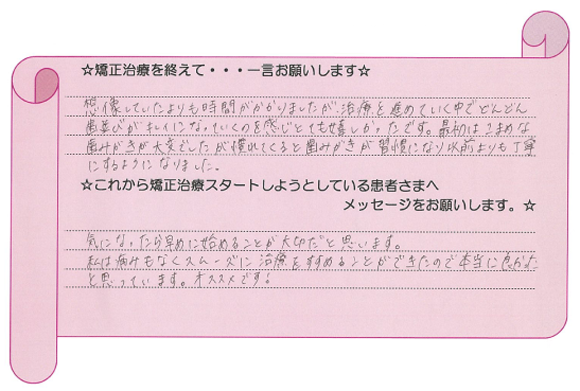 ☆矯正治療を終えて・・・一言お願いします☆
想像していたよりも時間がかかりましたが、治療を進めていく中でどんどん
歯並びがキレイになっていくのを感じとても嬉しかったです。最初はこまめな
歯みがきが大変でしたが慣れてくると歯みがきが習慣になり以前よりも丁寧
にするようになりました。
☆これから矯正治療スタートしようとしている患者さまへ
メッセージをお願いします。☆
気になったら早めに始めることが大切だと思います。
私は痛みもなくスムーズに治療をすすめることができたので本当に良かった
と思っています。オススメです!